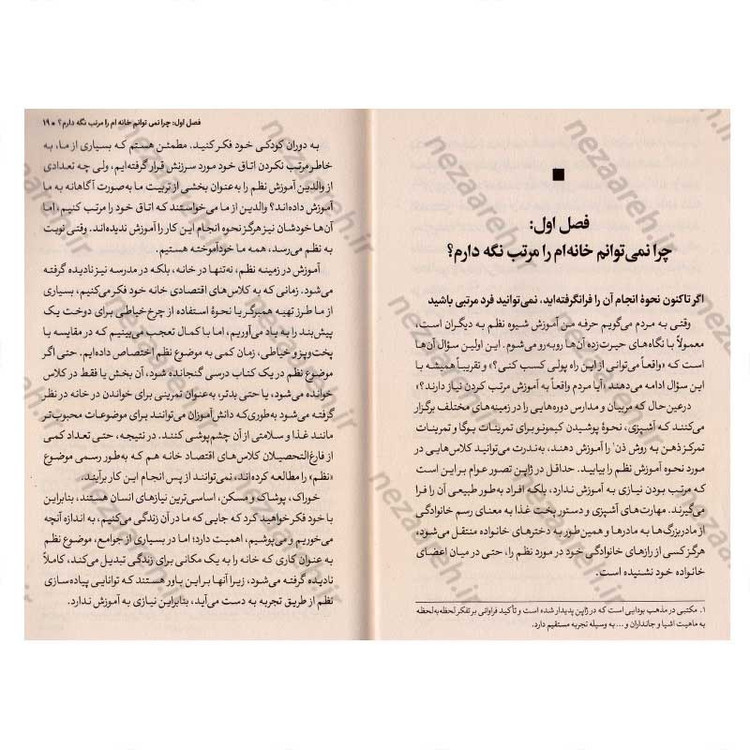 فصل اول:
چرا نمی‌توانم خانه‌ام را مرتب نگه دارم؟
اگر تاکنون نحوهٔ انجام آن را فرانگرفته‌اید، نمی‌توانید فرد مرتبی باشید
وقتی به مردم می‌گویم حرفه من آموزش شیوه نظم به دیگران است،
معمولاً با نگاه‌های حیرت‌زده آن‌ها روبه‌رو می‌شوم. این اولین سؤال آن‌ها
است که «واقعاً می‌توانی از این راه پولی کسب کنی؟» و تقریباً همیشه با
این سؤال ادامه می‌دهند: «آیا مردم واقعاً به آموزش مرتب کردن نیاز دارند؟»
درعین‌حال که مربیان و مدارس دوره‌هایی را در زمینه‌های مختلف برگزار
می‌کنند که آشپزی، نحوهٔ پوشیدن کیمونو برای تمرینات یوگا و تمرینات
تمرکز ذهن به روش ذن۱ را آموزش دهند، به‌ندرت می‌توانید کلاس‌هایی در
مورد نحوه آموزش نظم را بیابید. حداقل در ژاپن تصور عوام بر این است
که مرتب بودن نیازی به آموزش ندارد، بلکه افراد به‌طور طبیعی آن را فرا
می‌گیرند. مهارت‌های آشپزی و دستور پخت غذا به معنای رسم خانوادگی
از مادربزرگ‌ها به مادرها و همین‌طور به دخترهای خانواده منتقل می‌شود،
هرگز کسی از رازهای خانوادگی خود در مورد نظم را، حتی در میان اعضای
خانواده خود نشنیده است.
۱. مکتبی در مذهب بودایی است که در ژاپن پدیدار شده است و تأکید فراوانی بر تفکر لحظه به لحظه
به ماهیت اشیا و جانداران و... به وسیله تجربه مستقیم دارد.
فصل اول: چرا نمی توانم خانه ام را مرتب نگه دارم؟ ● ۱۹
به دوران کودکی خود فکر کنید. مطمئن هستم که بسیاری از ما، به
خاطر مرتب نکردن اتاق خود مورد سرزنش قرار گرفته‌ایم، ولی چه تعدادی
از والدین آموزش نظم را به‌عنوان بخشی از تربیت ما به‌صورت آگاهانه به ما
آموزش داده‌اند؟ والدین از ما می‌خواستند که اتاق خود را مرتب کنیم، اما
آن‌ها خودشان نیز هرگز نحوه انجام این کار را آموزش ندیده‌اند. وقتی نوبت
به نظم می‌رسد، همه ما خودآموخته هستیم.
آموزش در زمینه نظم، نه‌تنها در خانه، بلکه در مدرسه نیز نادیده گرفته
می‌شود. زمانی که به کلاس‌های اقتصادی خانه خود فکر می‌کنیم، بسیاری
از ما طرز تهیه همبرگر یا نحوهٔ استفاده از چرخ خیاطی برای دوخت یک
پیش‌بند را به یاد می‌آوریم، اما با کمال تعجب می‌بینیم که در مقایسه با
پخت‌وپز و خیاطی، زمان کمی به موضوع نظم اختصاص داده‌ایم. حتی اگر
موضوع نظم در یک کتاب درسی گنجانده شود، آن بخش یا فقط در کلاس
خوانده می‌شود، یا حتی بدتر، به‌عنوان تمرینی برای خواندن در خانه در نظر
گرفته می‌شود به‌طوری‌که دانش‌آموزان می‌توانند برای موضوعات محبوب‌تر
مانند غذا و سلامتی از آن چشم‌پوشی کنند. در نتیجه، حتی تعداد کمی
از فارغ‌التحصیلان کلاس‌های اقتصاد خانه هم که به‌طور رسمی موضوع
«نظم» را مطالعه کرده‌اند، نمی‌توانند از پس انجام این کار برآیند.
خوراک، پوشاک و مسکن، اساسی‌ترین نیازهای انسان هستند، بنابراین
با خود فکر خواهید کرد که جایی که ما در آن زندگی می‌کنیم، به اندازه آنچه
می‌خوریم و می‌پوشیم، اهمیت دارد؛ اما در بسیاری از جوامع، موضوع نظم
به عنوان کاری که خانه را به یک مکانی برای زندگی تبدیل می‌کند، کاملاً
نادیده گرفته می‌شود، زیرا آنها بر این باور هستند که توانایی پیاده‌سازی
نظم از طریق تجربه به دست می‌آید، بنابراین نیازی به آموزش ندارد.
nezaareh.ir